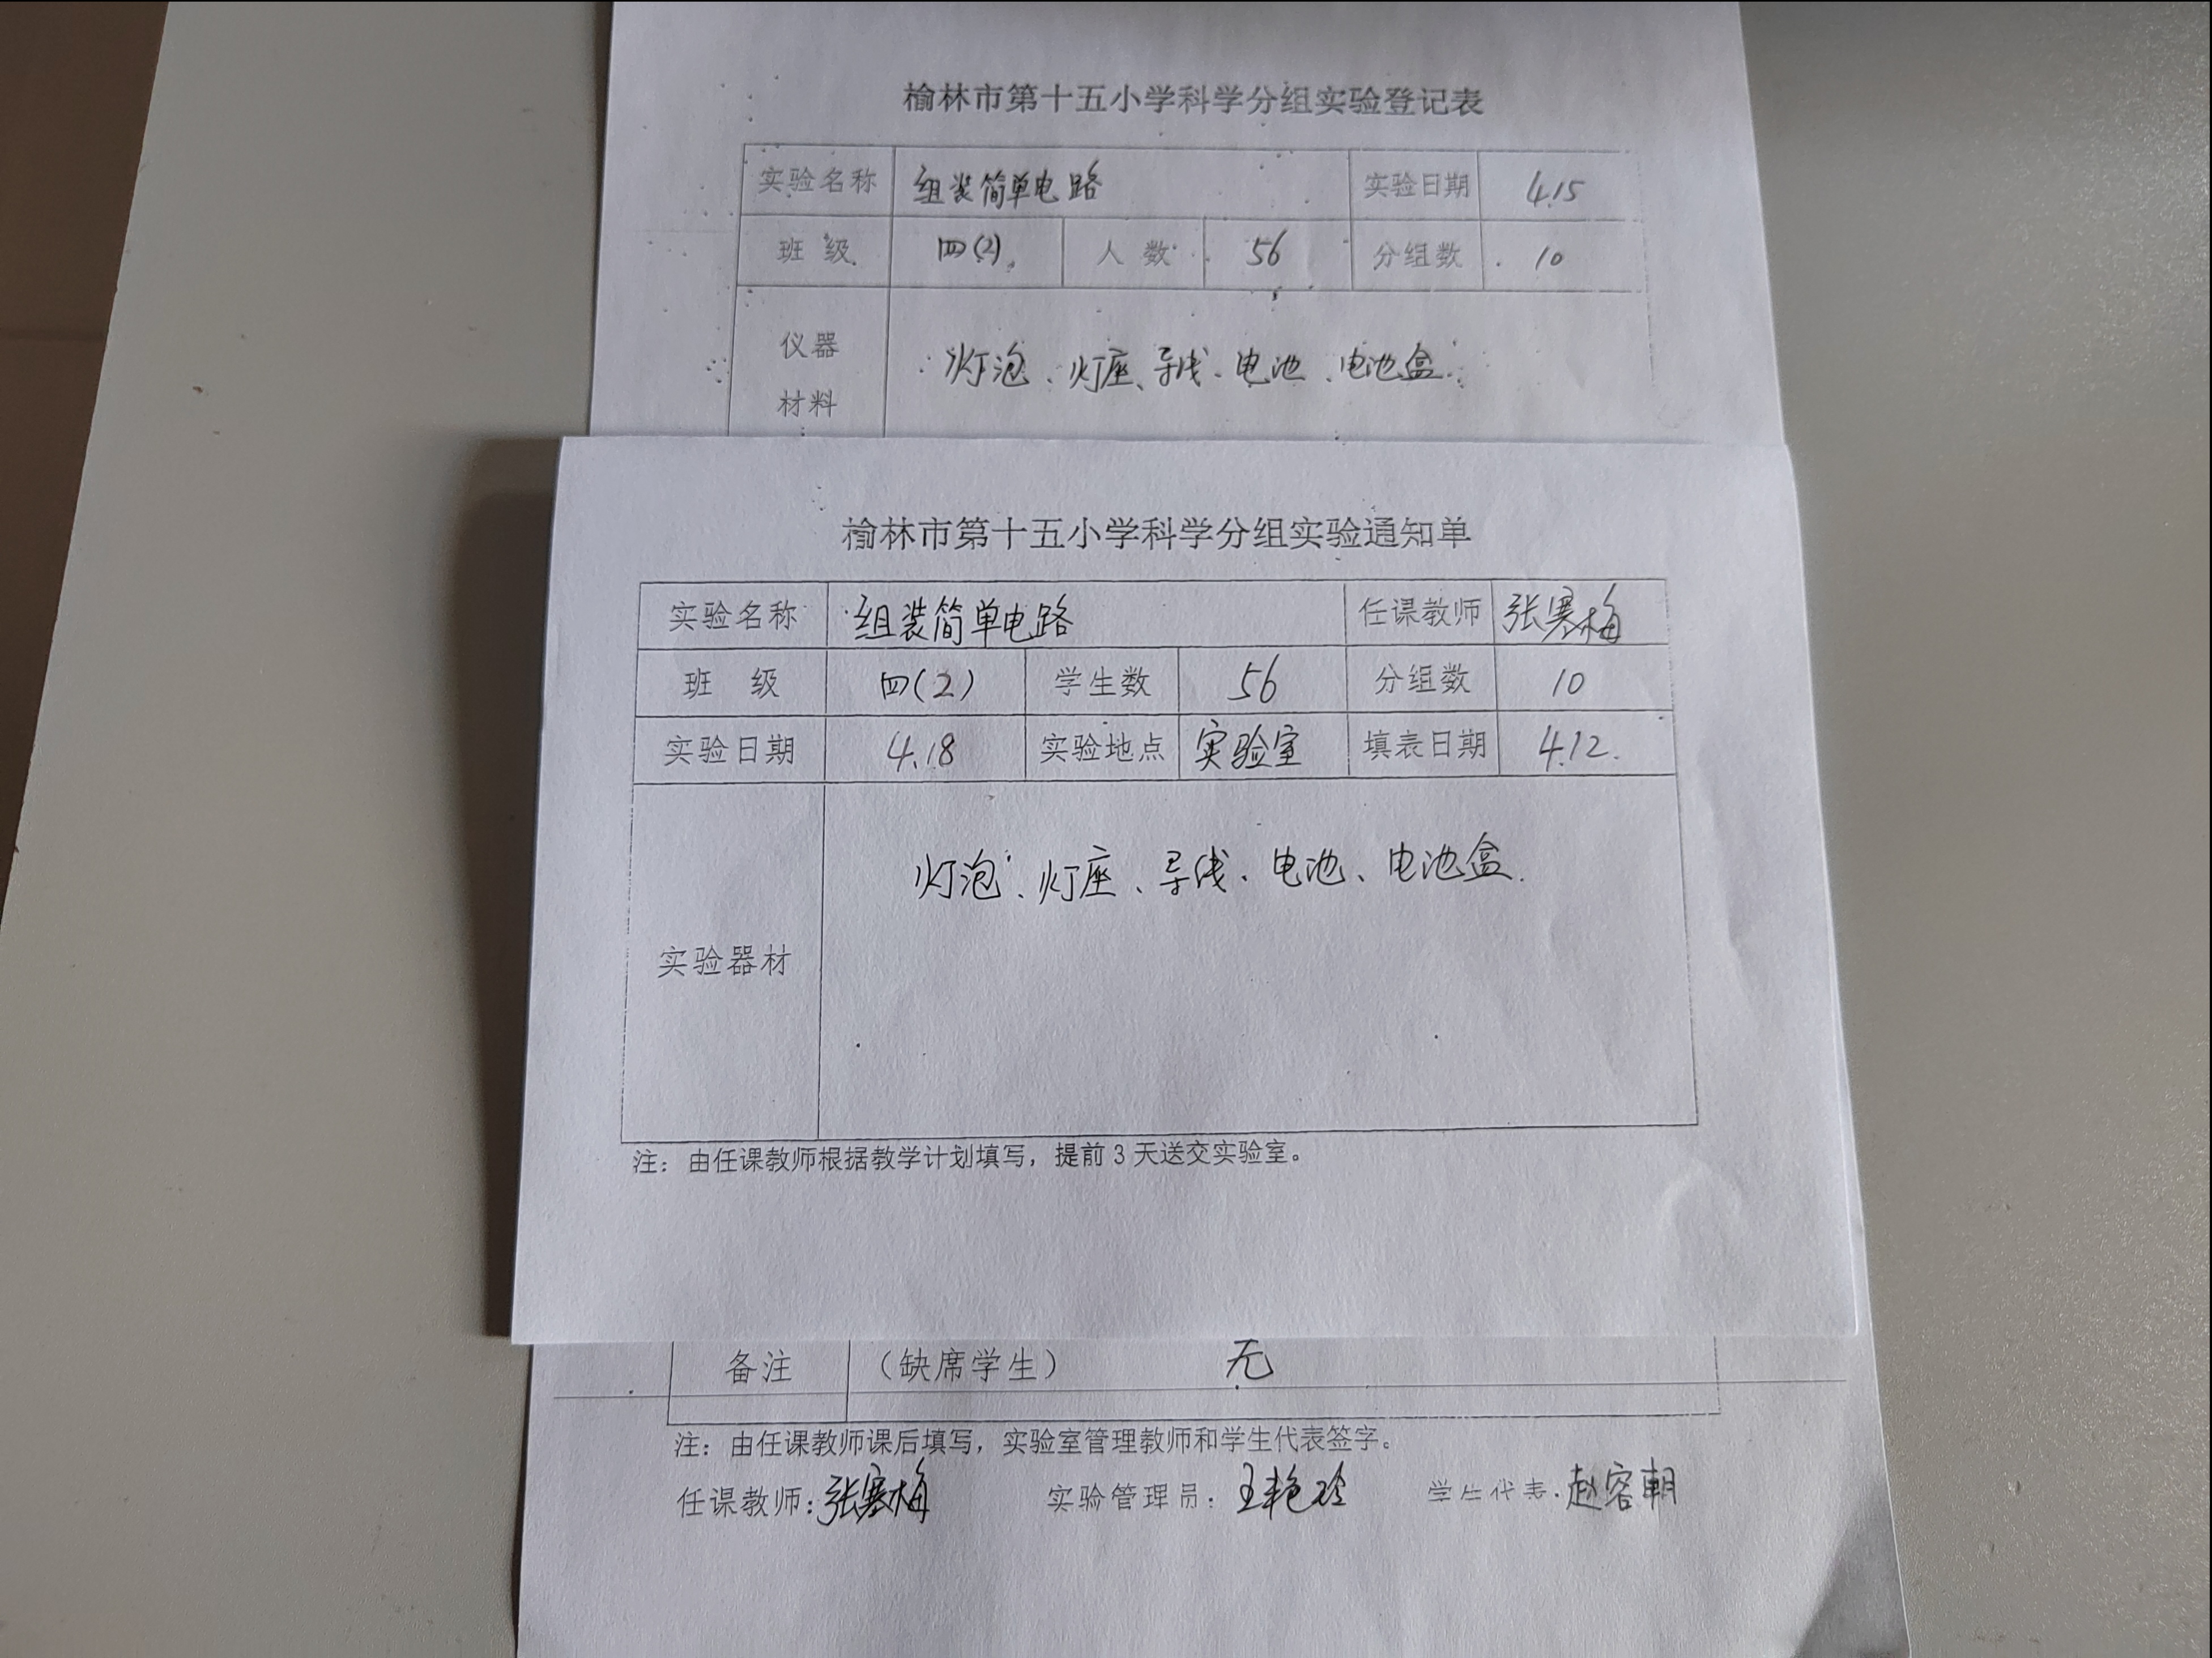 榆林市第十五小学科学分组实验登记表
实验名称 组装简单电路 实验日期 4.15
班 级 四(2) 人 数 56 分组数 10
仪器
材料 灯泡、灯座、导线、电池、电池盒.
榆林市第十五小学科学分组实验通知单
实验名称 组装简单电路 任课教师 张寒梅
班 级 四(2) 学生数 56 分组数 10
实验日期 4.18 实验地点 实验室 填表日期 4.12.
实验器材 灯泡、灯座、导线、电池、电池盒.
注：由任课教师根据教学计划填写，提前 3 天送交实验室。
备注 （缺席学生） 无
注：由任课教师课后填写，实验室管理教师和学生代表签字。
任课教师：张寒梅 实验管理员：王艳玲 学生代表：赵容朝